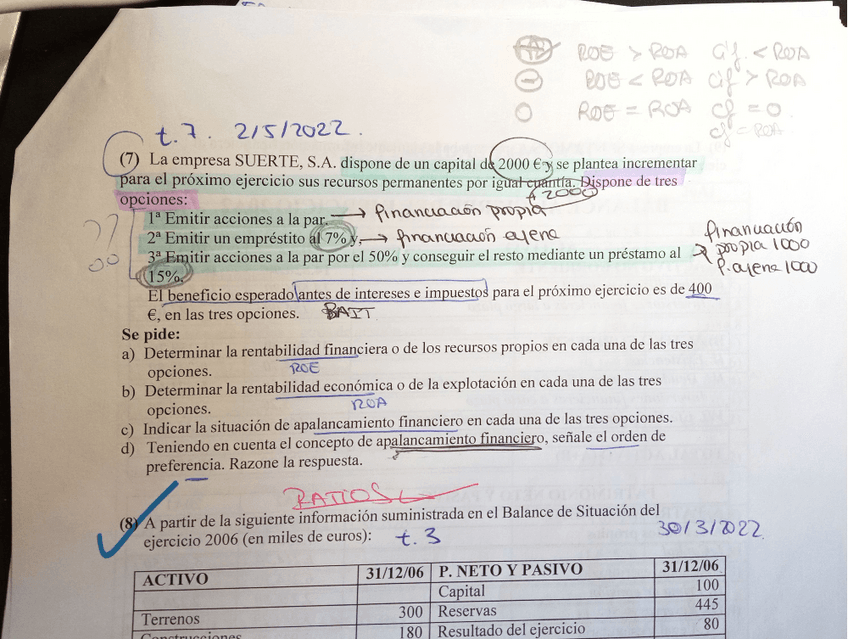 ROE > ROA Cif. < ROA
ROE < ROA Cif > ROA
O ROE = ROA Cf = 0
Cf = ROA
t.7. 2/5/2022.
(7) La empresa SUERTE, S.A. dispone de un capital de 2000 € y se plantea incrementar
para el próximo ejercicio sus recursos permanentes por igual cuantía. Dispone de tres
+2000
opciones:
1ª Emitir acciones a la par. → financiación propia
2ª Emitir un empréstito al 7% y, → financiación ajena
3ª Emitir acciones a la par por el 50% y conseguir el resto mediante un préstamo al → financiación
propia 1000
f. ajena 1000
15%.
??
El beneficio esperado antes de intereses e impuestos para el próximo ejercicio es de 400
€, en las tres opciones. BAIT
Se pide:
a) Determinar la rentabilidad financiera o de los recursos propios en cada una de las tres
opciones. ROE
b) Determinar la rentabilidad económica o de la explotación en cada una de las tres
opciones. ROA
c) Indicar la situación de apalancamiento financiero en cada una de las tres opciones.
d) Teniendo en cuenta el concepto de apalancamiento financiero, señale el orden de
preferencia. Razone la respuesta.
RATIOS
(8) A partir de la siguiente información suministrada en el Balance de Situación del
ejercicio 2006 (en miles de euros): t.3 30/3/2022.
ACTIVO 31/12/06 P. NETO Y PASIVO 31/12/06
Capital 100
Terrenos 300 Reservas 445
Construcciones 180 Resultado del ejercicio 80